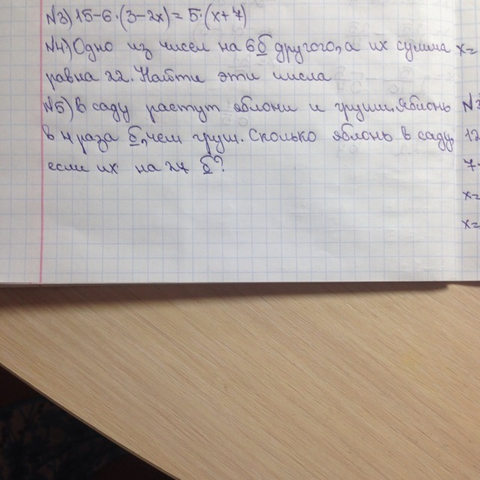 №3) 15-6·(3-2x)=5·(x+7)
№4) Одно из чисел на 6 б другого, а их сумма x=
равна 22. Найти эти числа
№5) В саду растут яблони и груши. Яблонь
в 4 раза б, чем груш. Сколько яблонь в саду, 12
если их на 27 б? 7
x=
x=